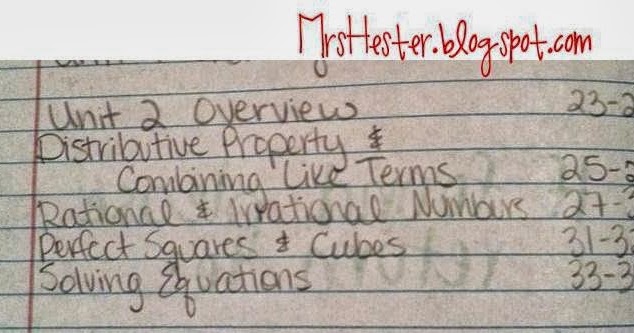 MrsHester.blogspot.com
Unit 2 Overview 23-2
Distributive Property &
Combining Like Terms 25-2
Rational & Irrational Numbers 27-3
Perfect Squares & Cubes 31-3
Solving Equations 33-3